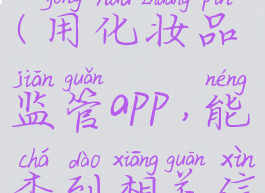 yòng huà zhuāng pǐn
(用化妆品
jiān guǎn néng
监管app,能
chá dào xiāng guān xìn
查到相关信